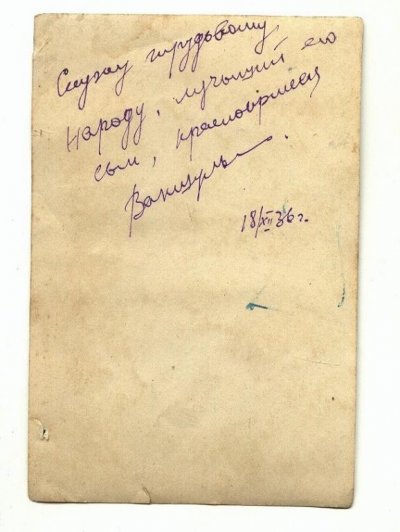 Служу трудовому
народу, лучший его
сын, красноармеец
Вакицуль.
18/XII 36 г.